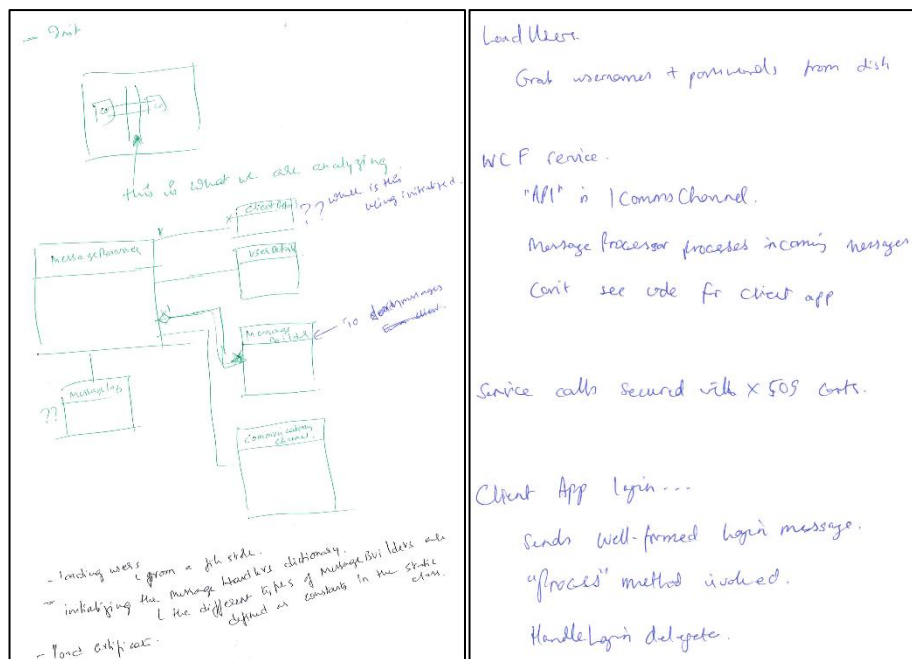 - Init
this is what we are analyzing
?? where is this
being initialized.
Client App
MessageProcessor
UserDetail
Message
Builder
To messages
MessageLog
??
Communication
Channel.
- loading users from a file store.
- initializing the Message Handlers dictionary.
( the different types of MessageBuilders are
defined as constants in the static
class.
- load certificate.
Load Users.
Grab usernames + passwords from disk
WCF service.
"API" is ICommsChannel.
Message Processor processes incoming messages
Can't see code for client app
Service calls secured with X509 certs.
Client App login...
Sends well-formed login message.
"Process" method invoked.
HandleLogin delegate.